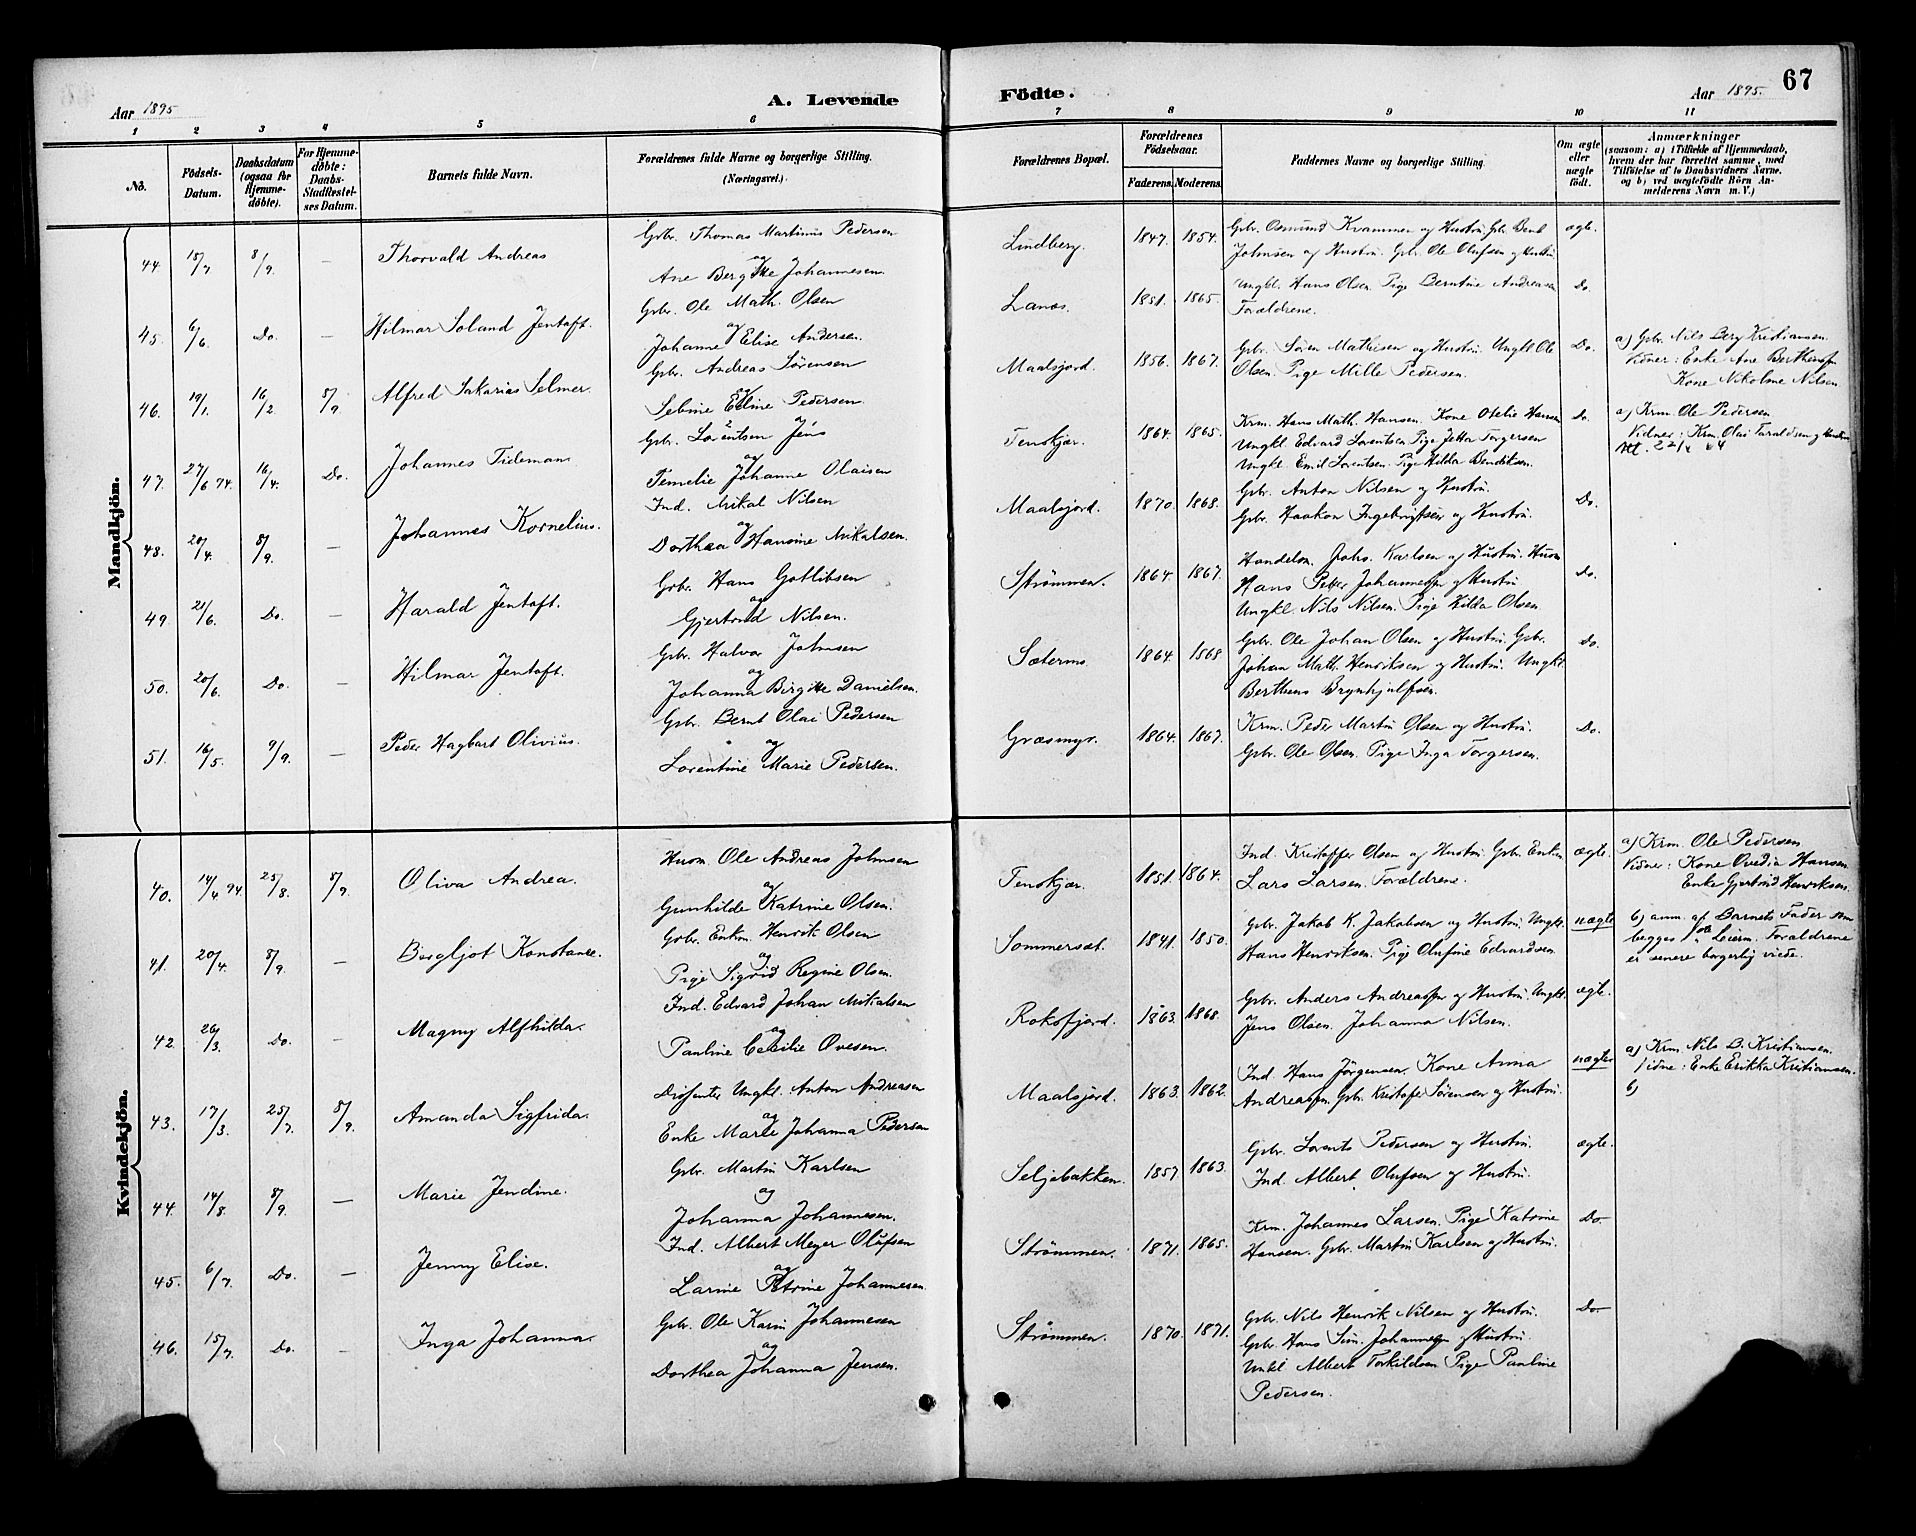 67
Aar 1895
A. Levende
Födte.
Aar 1895.
1 2 3 4 5 6 7 8 9 10 11
No.
Födsels-Datum.
Daabsdatum (ogsaa for Hjemme-döbte).
For Hjemme-döbte: Daabs-Stadfæstel-ses Datum.
Barnets fulde Navn.
Forældrenes fulde Navne og borgerlige Stilling.
(Næringsvei.)
Forældrenes Bopæl.
Forældrenes Födselsaar.
Faderens. Moderens.
Faddernes Navne og borgerlige Stilling.
Om ægte eller uægte födt.
Anmærkninger
(saasom: a) i Tilfælde af Hjemmedaab,
hvem der har forrettet samme, med
Tilföielse af to Daabsvidners Navne,
og b) ved uægtefödte Börn An-
melderens Navn m. V.)
Mandkjön.
44. 15/7 8/9. — Thorvald Andreas
Gbr. Thomas Martinus Pedersen
og
Ane Bergitte Johannesen
Lindberg. 1847. 1854.
Gbr. Osmund Kvammen og Hustru. Gbr. Bent
Johnsen og Hustru. Gbr. Ole Olufsen og Hustru
ægte.
45. 6/6. Do. — Hilmar Soland Jentoft.
Gbr. Ole Math. Olsen
og
Johanne Elise Andersen.
Lanes. 1851. 1865.
Ungkl. Hans Olsen. Pige Berntine Andreasen
Forældrene.
Do.
46. 19/1. 16/2. 8/9 Alfred Sakarias Selmer.
Gbr. Andreas Sørensen
og
Sebine Eline Pedersen
Maalsjord. 1856. 1867.
Gbr. Søren Mathisen og Hustru. Ungkl Ole
Olsen. Pige Mille Pedersen.
Do.
a) Gbr. Nils Berg Kristiansen.
Vidner: Enke Ane Berthensen
Kone Nikoline Nilsen
47. 27/6 94. 16/4. Do. Johannes Tideman
Gbr. Lorentsen Jens
og
Temelie Johanne Olaisen
Tenskjær. 1864. 1865.
Krm. Hans Math. Hansen. Kone Otelie Hansen
Ungkl. Edvard Lorentsen Pige Jetta Torgersen
Ungkl. Emil Lorentsen. Pige Hilda Bendiksen.
Do.
a) Krm. Ole Pedersen
Vidner: Krm. Olai Taraldsen og Hustru
48. 20/4. 8/9. — Johannes Kornelius.
Ind. Mikal Nilsen
og
Dorthea Hansine Mikalsen.
Maalsjord. 1870. 1868.
Gbr. Anton Nilsen og Hustru.
Gbr. Haakon Ingebrigtsen og Hustru.
Do.
49. 21/6. Do. — Harald Jentoft.
Gbr. Hans Gotlibsen
og
Gjertrud Nilsen.
Strømmen. 1864. 1867.
Handelsm. Johs. Karlsen og Hustru. Husm
Hans Peter Johannesen og Hustru
Ungkl Nils Nilsen. Pige Hilda Olsen
Do.
50. 20/6. Do. — Hilmar Jentoft.
Gbr. Halvor Johnsen
og
Johanna Birgitte Danielsen.
Sætermo. 1864. 1868
Gbr. Ole Johan Olsen og Hustru. Gbr.
Johan Math. Henriksen og Hustru. Ungkl.
Berthens Brynhjulfsen.
Do.
51. 16/5. 9/9. — Peder Hagbart Olivius.
Gbr. Bernt Olai Pedersen
og
Lorentine Marie Pedersen.
Græsmyr. 1864. 1867.
Krm. Peder Martin Olsen og Hustru.
Gbr. Ole Olsen. Pige Inga Torgersen.
Do.
Kvindekjön.
40. 14/4 94 25/8. 8/9. Oliva Andrea.
Husm. Ole Andreas Johnsen
og
Gunhilde Katrine Olsen.
Tenskjær. 1851. 1864.
Ind. Kristoffer Olsen og Hustru. Gbr. Enkem
Lars Larsen. Forældrene.
ægte.
a) Krm. Ole Pedersen
Vidner: Kone Ovedia Hansen
Enke Gjertrud Henriksen.
41. 20/4. 8/9. — Bergljot Konstance.
Gbr. Enkm. Henrik Olsen
og
Pige Sigrid Regine Olsen.
Sommerset. 1841. 1850.
Gbr. Jakob K. Jakobsen og Hustru. Ungkl.
Hans Henriksen. Pige Olufine Edvardsen
uægte
b) anm. af Barnets Fader som
begges Leierm. Forældrene
er senere borgerlig viede.
42. 26/3. Do. — Magny Alfhilda.
Ind. Edvard Johan Mikalsen
og
Pauline Cecilie Ovesen.
Roksfjord. 1863. 1868.
Gbr. Anders Andreassen og Hustru. Ungkl.
Jens Olsen. Johanna Nilsen.
ægte.
43. 17/3. 25/7. 8/9. Amanda Sigfrida.
Dissenter Ungkl. Anton Andreasen
og
Enke Marie Johanna Pedersen
Maalsjord. 1863. 1862.
Ind. Hans Jørgensen. Kone Anna
Andreassen. Gbr. Kristofer Sørensen og Hustru.
uægte
a) Krm. Nils B. Kristiansen.
Vidne: Enke Erikka Kristiansen.
b)
44. 14/8. 8/9. — Marie Jendine.
Gbr. Martin Karlsen
og
Johanna Johannesen.
Seljebakken. 1857. 1863.
Gbr. Lorents Pedersen og Hustru.
Ind. Albert Olufsen og Hustru.
ægte.
45. 6/7. Do. — Jenny Elise.
Ind. Albert Meyer Olufsen
og
Larine Petrine Johannesen.
Strømmen. 1871. 1865.
Krm. Johannes Larsen. Pige Katrine
Hansen. Gbr. Martin Karlsen og Hustru.
Do.
46. 15/7. Do. — Inga Johanna.
Gbr. Ole Karin Johannesen
og
Dorthea Johanna Jensen.
Strømmen. 1870. 1871.
Gbr. Nils Henrik Nilsen og Hustru.
Gbr. Hans Sim. Johannesen og Hustru.
Unkl Albert Torkildsen Pige Pauline
Pedersen.
Do.